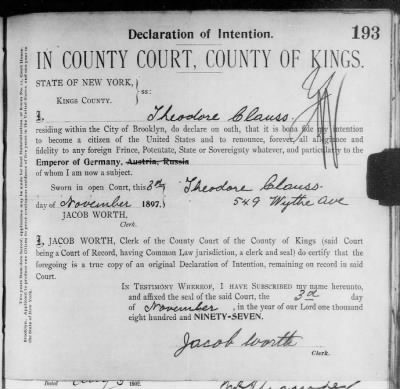 Declaration of Intention. 193
IN COUNTY COURT, COUNTY OF KINGS.
STATE OF NEW YORK,
ss:
KINGS COUNTY.
I, Theodore Clauss
residing within the City of Brooklyn, do declare on oath, that it is bona fide my intention
to become a citizen of the United States and to renounce, forever, all allegiance and
fidelity to any foreign Prince, Potentate, State or Sovereignty whatever, and particularly to the
Emperor of Germany, Austria, Russia
of whom I am now a subject.
Sworn in open Court, this 3rd Theodore Clauss
day of November 1897. 549 Wythe Ave
JACOB WORTH,
Clerk.
I, JACOB WORTH, Clerk of the County Court of the County of Kings (said Court
being a Court of Record, having Common Law jurisdiction, a clerk and seal) do certify that the
foregoing is a true copy of an original Declaration of Intention, remaining on record in said
Court.
IN TESTIMONY WHEREOF, I HAVE SUBSCRIBED my name hereunto,
and affixed the seal of the said Court, the 3rd day
of November, in the year of our Lord one thousand
eight hundred and NINETY-SEVEN.
Jacob Worth
Clerk.
Dated 1892.